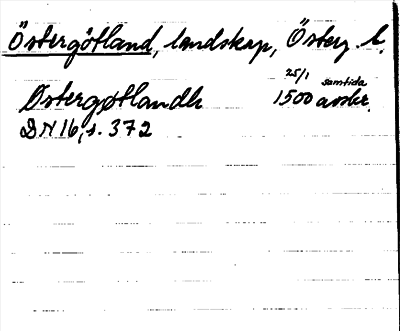 Östergötland, landskap, Österg. l.
Østergøtlandh 25/1 1500 samtida avskr.
DN 16, s. 372